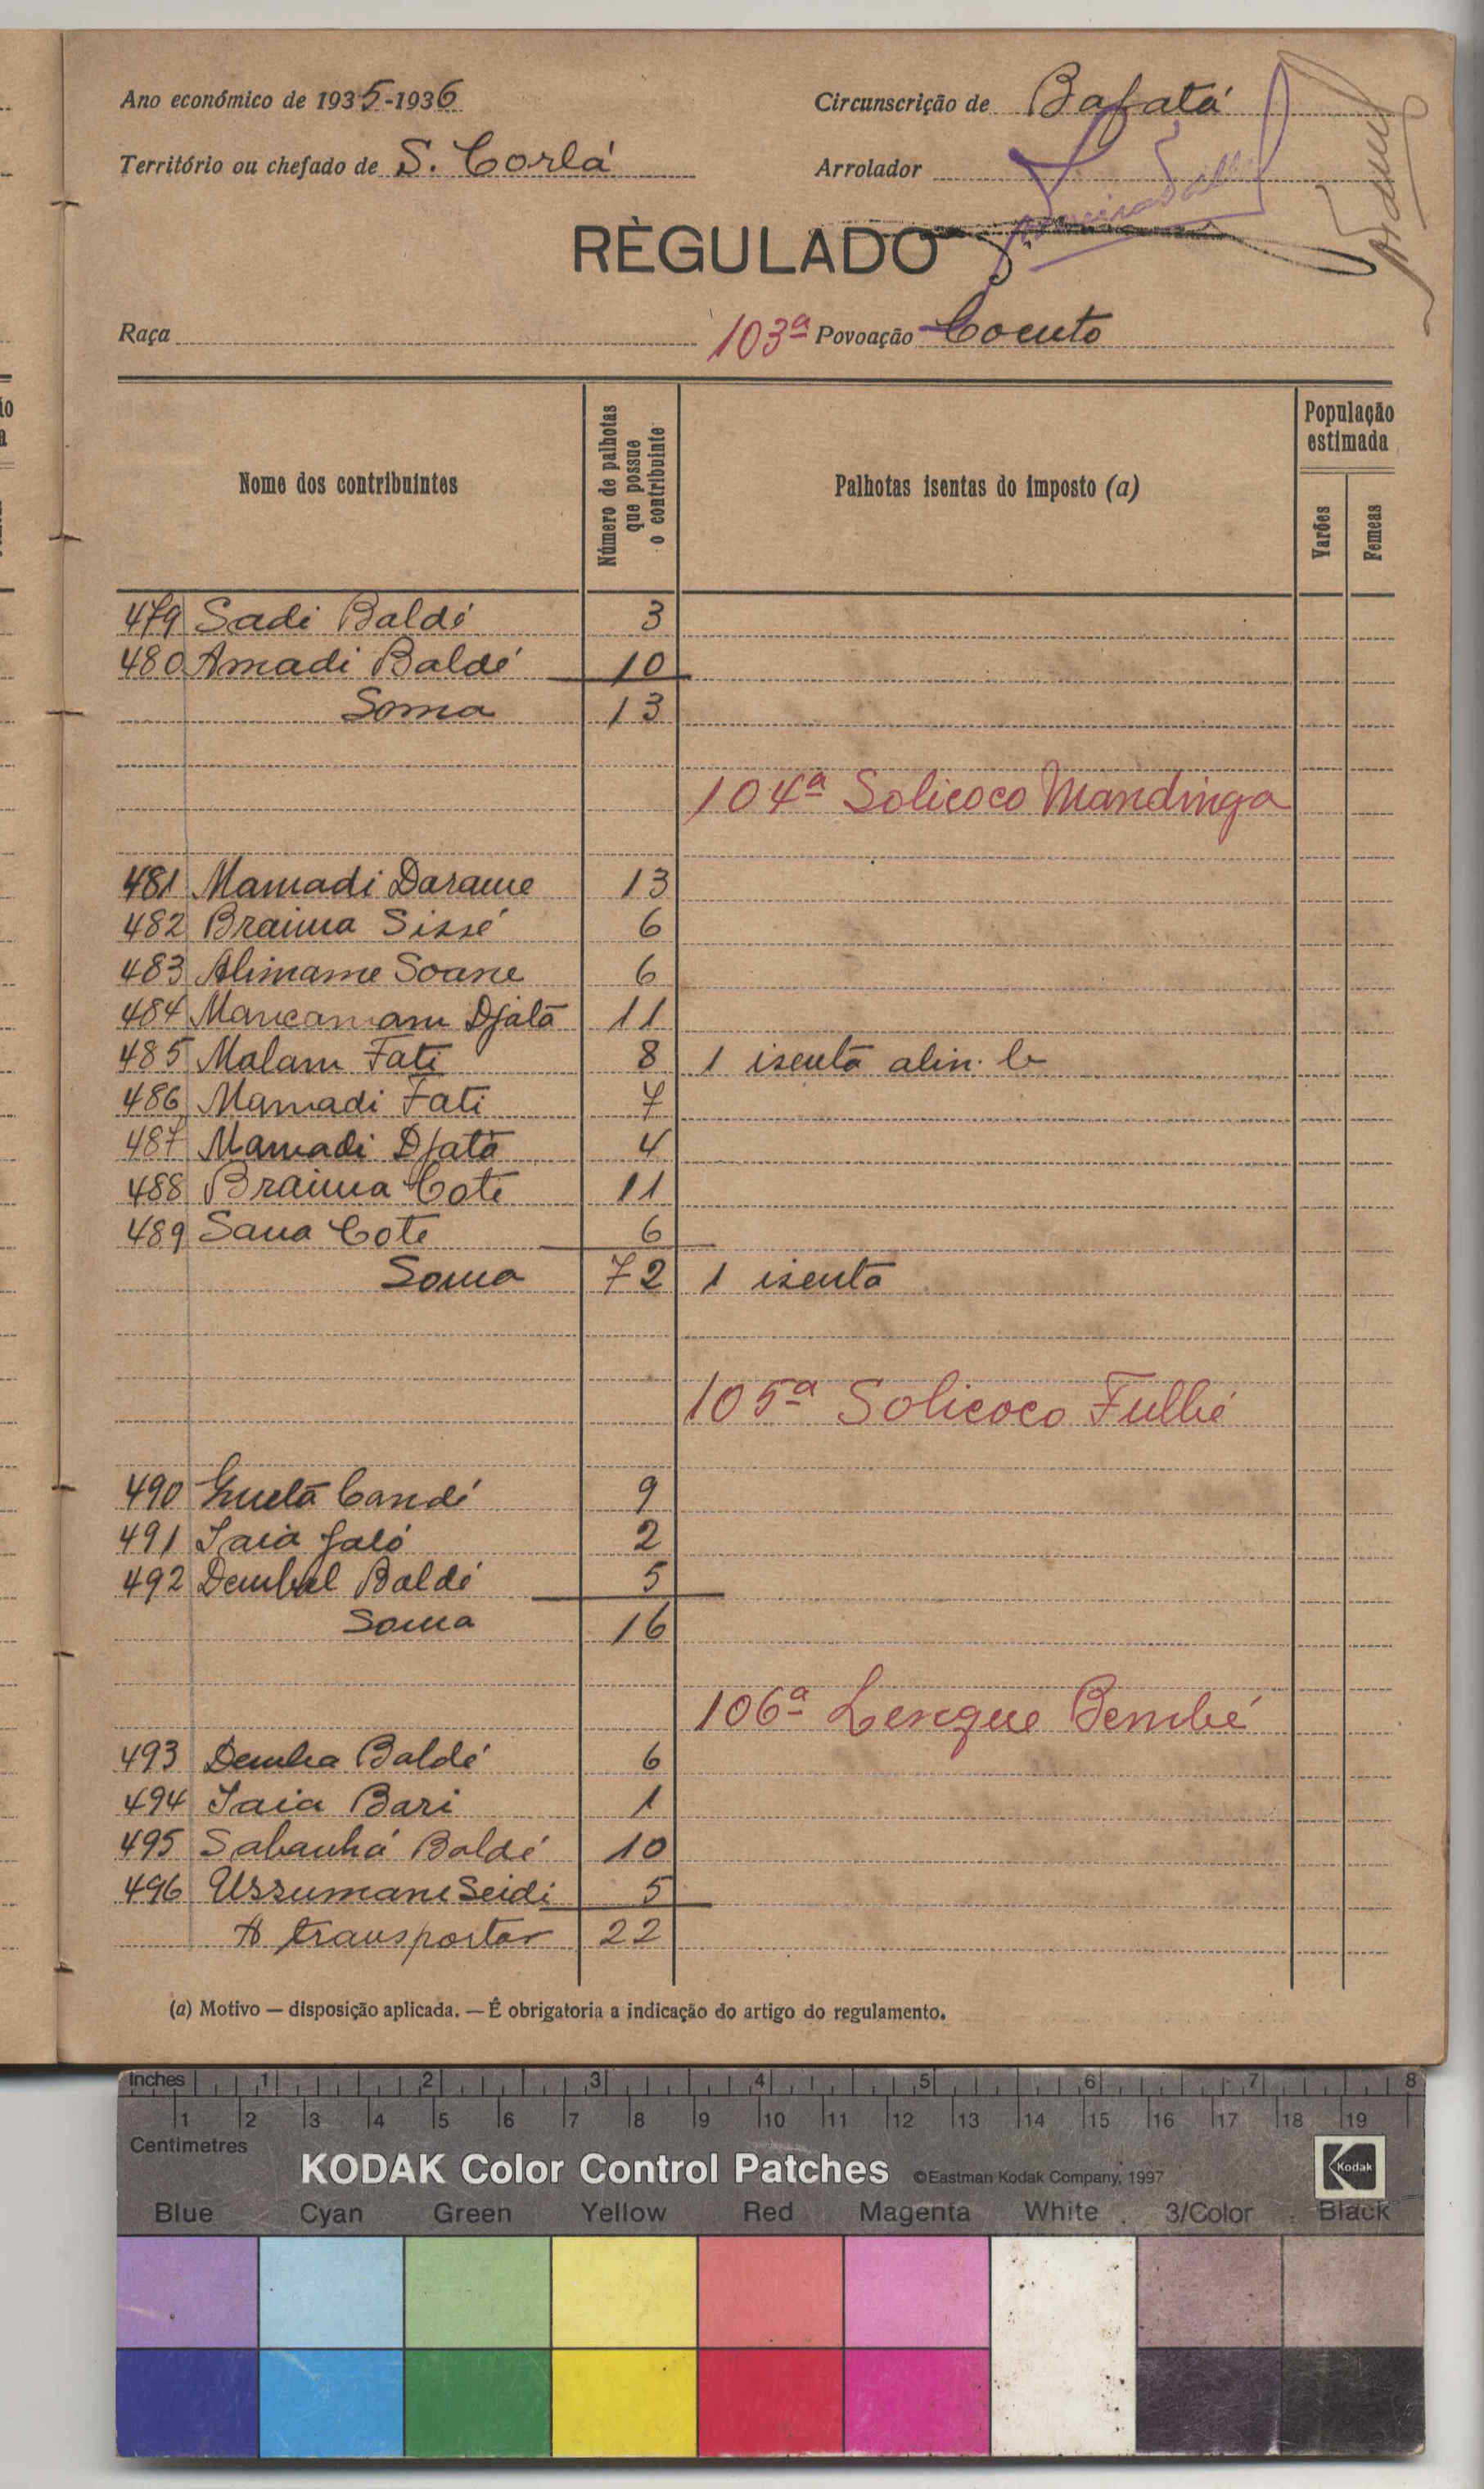 Ano económico de 1935-1936
Circunscrição de Bafatá
Território ou chefado de S. Corlá
Arrolador
RÈGULADO
Raça
103ª Povoação Cocuto
Nome dos contribuintes
Número de palhotas
que possue
o contribuinte
Palhotas isentas do imposto (a)
População
estimada
Varões
Femeas
479 Sadi Baldé 3
480 Amadi Baldé 10
Soma 13
104ª Solicoco Mandinga
481 Mamadi Darame 13
482 Braima Sissé 6
483 Alimame Soane 6
484 Mancamam Djatã 11
485 Malam Fati 8 1 isenta alin. b
486 Mamadi Fati 7
487 Mamadi Djatã 4
488 Braima Cote 11
489 Sana Cote 6
Soma 72 1 isenta
105ª Solicoco Fulbé
490 Candé 9
491 Iaia Jaló 2
492 Dembel Baldé 5
Soma 16
106ª Lengue Bembé
493 Demba Baldé 6
494 Iaia Bari 1
495 Sabanhá Baldé 10
496 Ussumane Seidi 5
A transportar 22
(a) Motivo — disposição aplicada. — É obrigatoria a indicação do artigo do regulamento.
Inches 1 2 3 4 5 6 7 8
1 2 3 4 5 6 7 8 9 10 11 12 13 14 15 16 17 18 19
Centimetres
KODAK Color Control Patches ©Eastman Kodak Company, 1997 Kodak
Blue Cyan Green Yellow Red Magenta White 3/Color Black